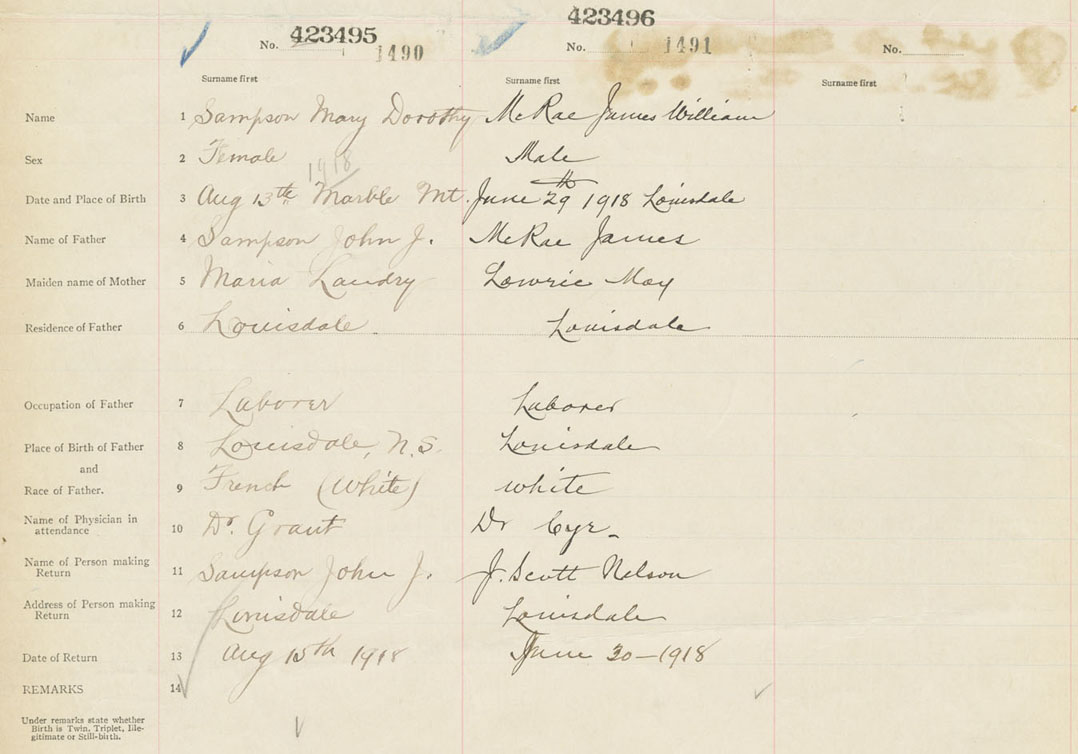 423495 423496
No. 1490 No. 1491 No.
Surname first Surname first Surname first
Name 1 Sampson Mary Dorothy McRae James William
Sex 2 Female Male
1918
Date and Place of Birth 3 Aug 13th Marble Mt. June 29th 1918 Louisdale
Name of Father 4 Sampson John J. McRae James
Maiden name of Mother 5 Maria Landry Lowrie May
Residence of Father 6 Louisdale Louisdale
Occupation of Father 7 Laborer Laborer
Place of Birth of Father 8 Louisdale, N.S. Louisdale
and
Race of Father. 9 French (White) white
Name of Physician in
attendance 10 Dr. Grant Dr Cyr
Name of Person making
Return 11 Sampson John J. J. Scott Nelson
Address of Person making
Return 12 Louisdale Louisdale
Date of Return 13 Aug 15th 1918 June 30-1918
REMARKS 14
Under remarks state whether
Birth is Twin, Triplet, Ille-
gitimate or Still-birth.